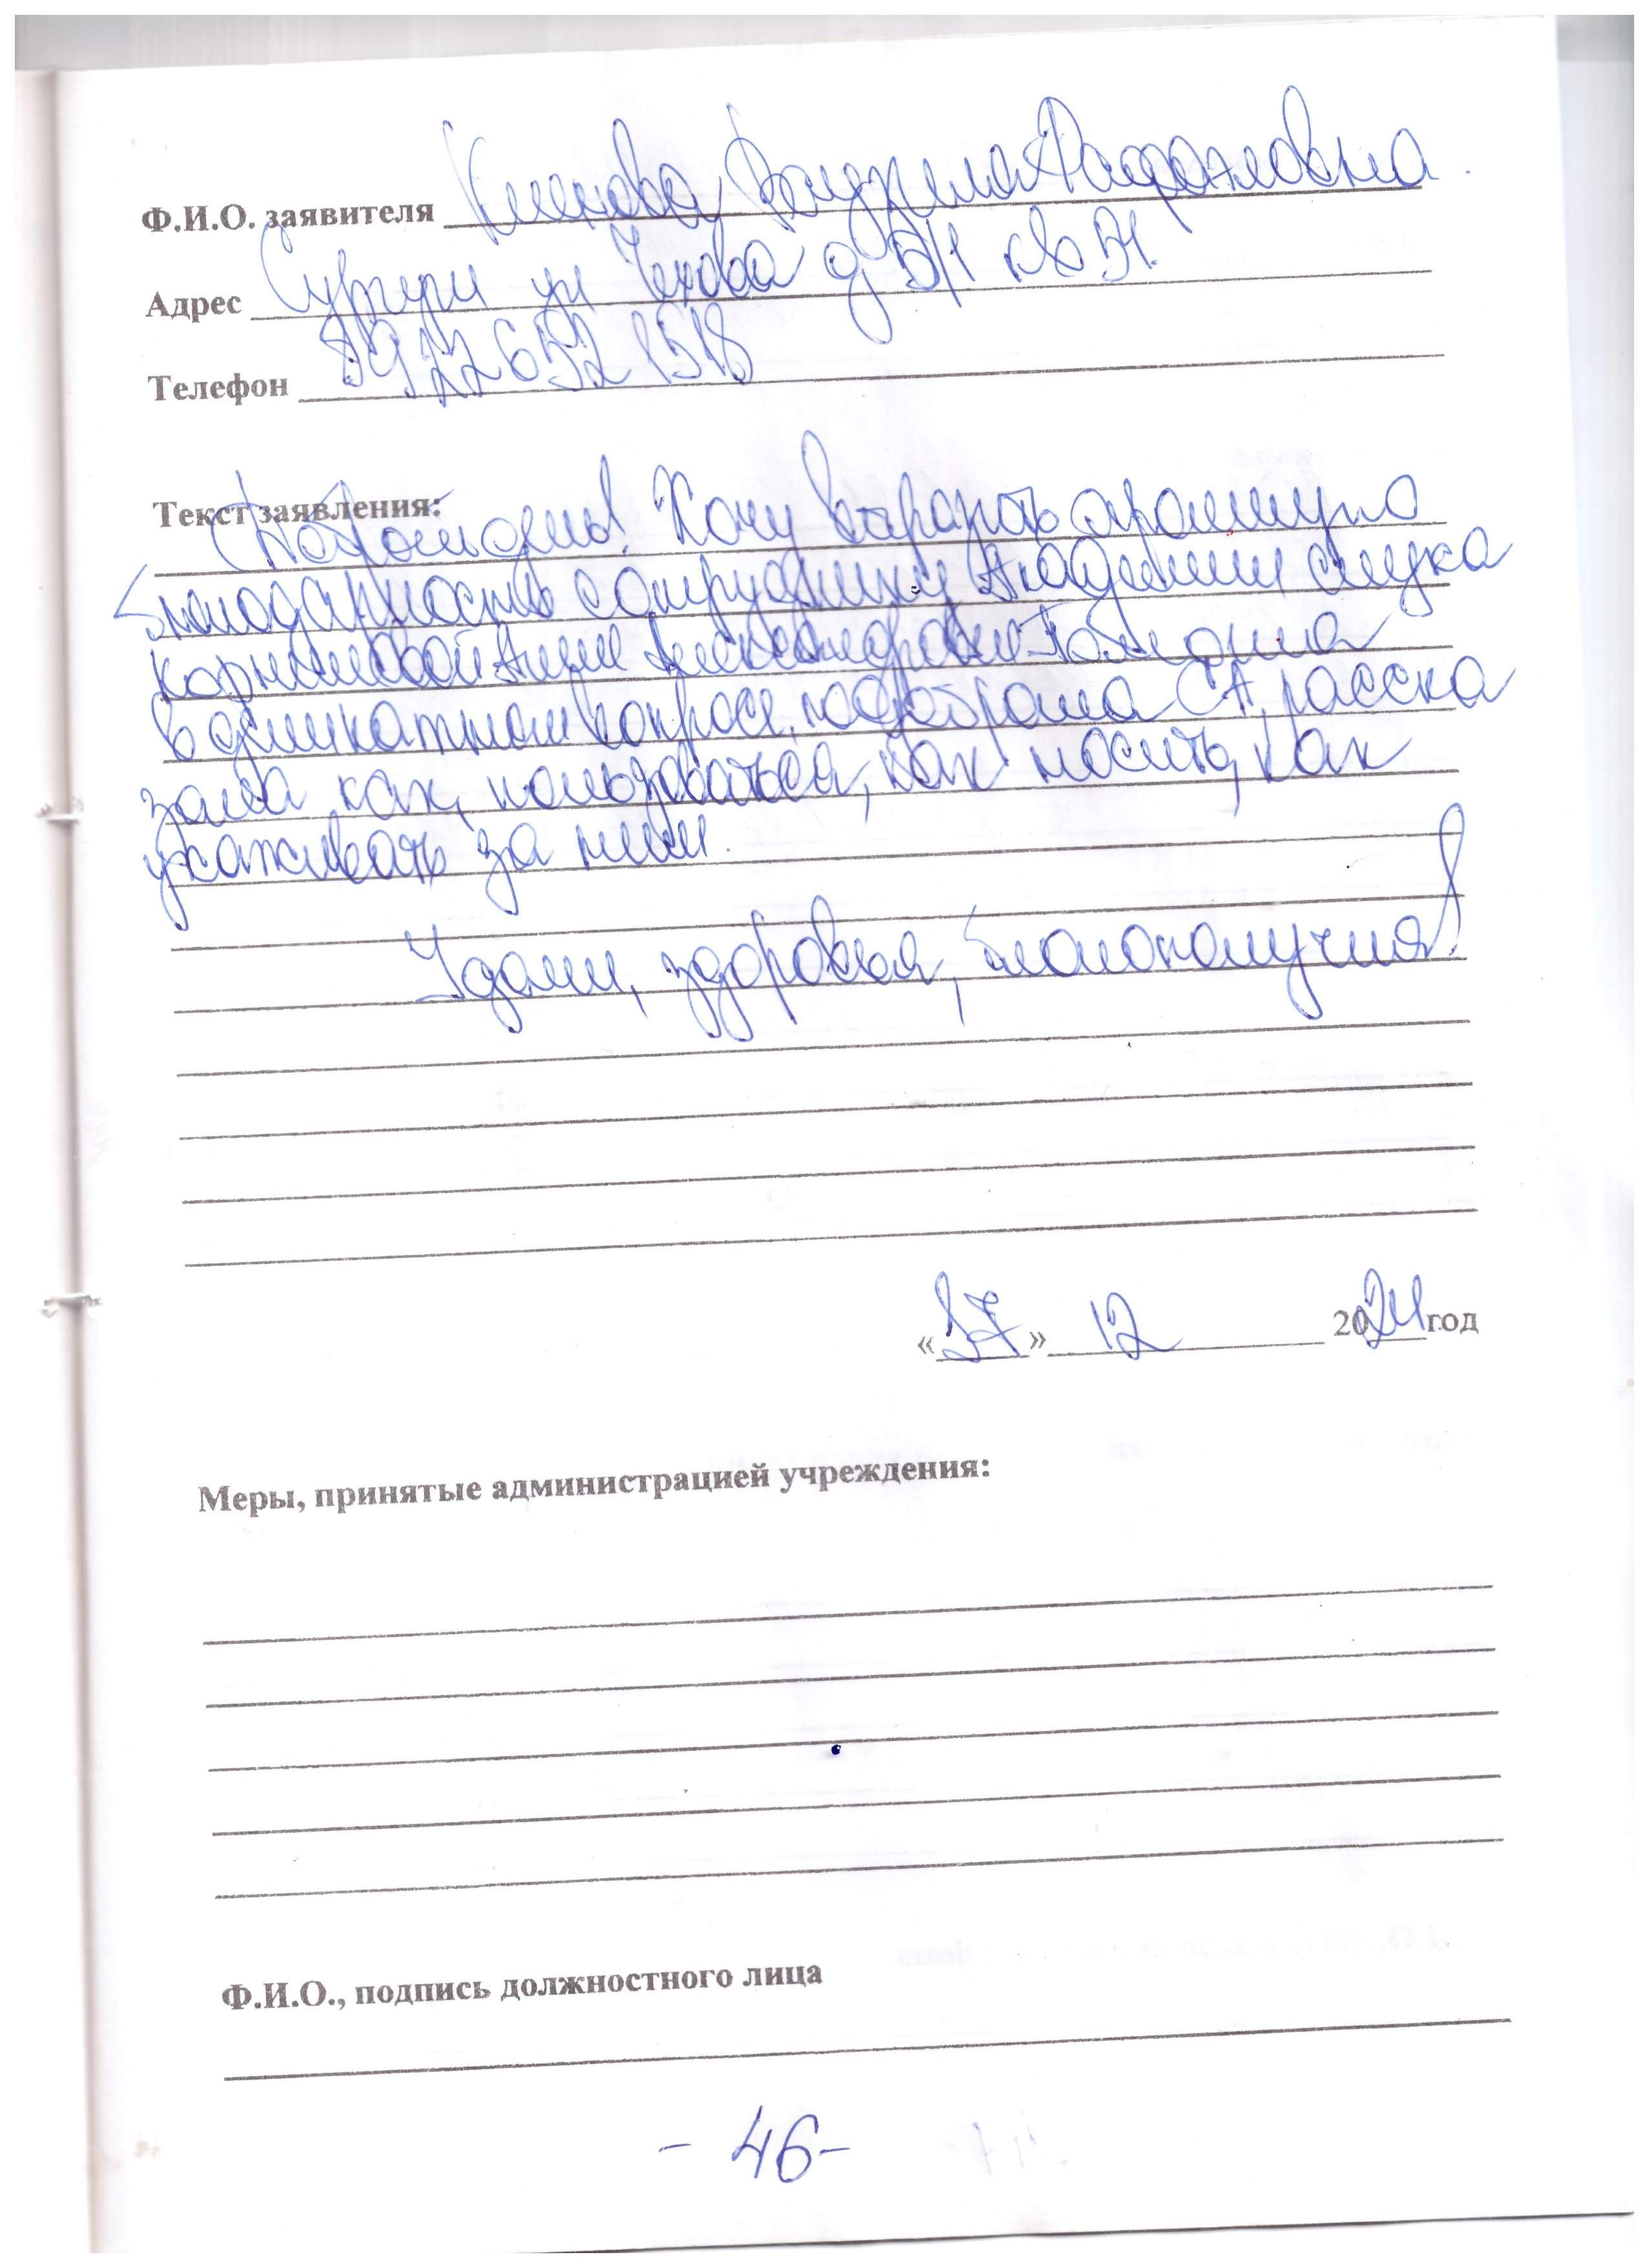 Ф.И.О. заявителя
Адрес ул Чехова д 5/1 кв 51.
Телефон 89226521518
Текст заявления:
Добрый день! Хочу выразить огромную
благодарность сотруднику Академии слуха
в деликатном вопросе, подобрала СА, расска
зала как пользоваться, как носить, как
ухаживать за ним.
Удачи, здоровья, благополучия!
«27» 12 2024 год
Меры, принятые администрацией учреждения:
Ф.И.О., подпись должностного лица
- 46 -